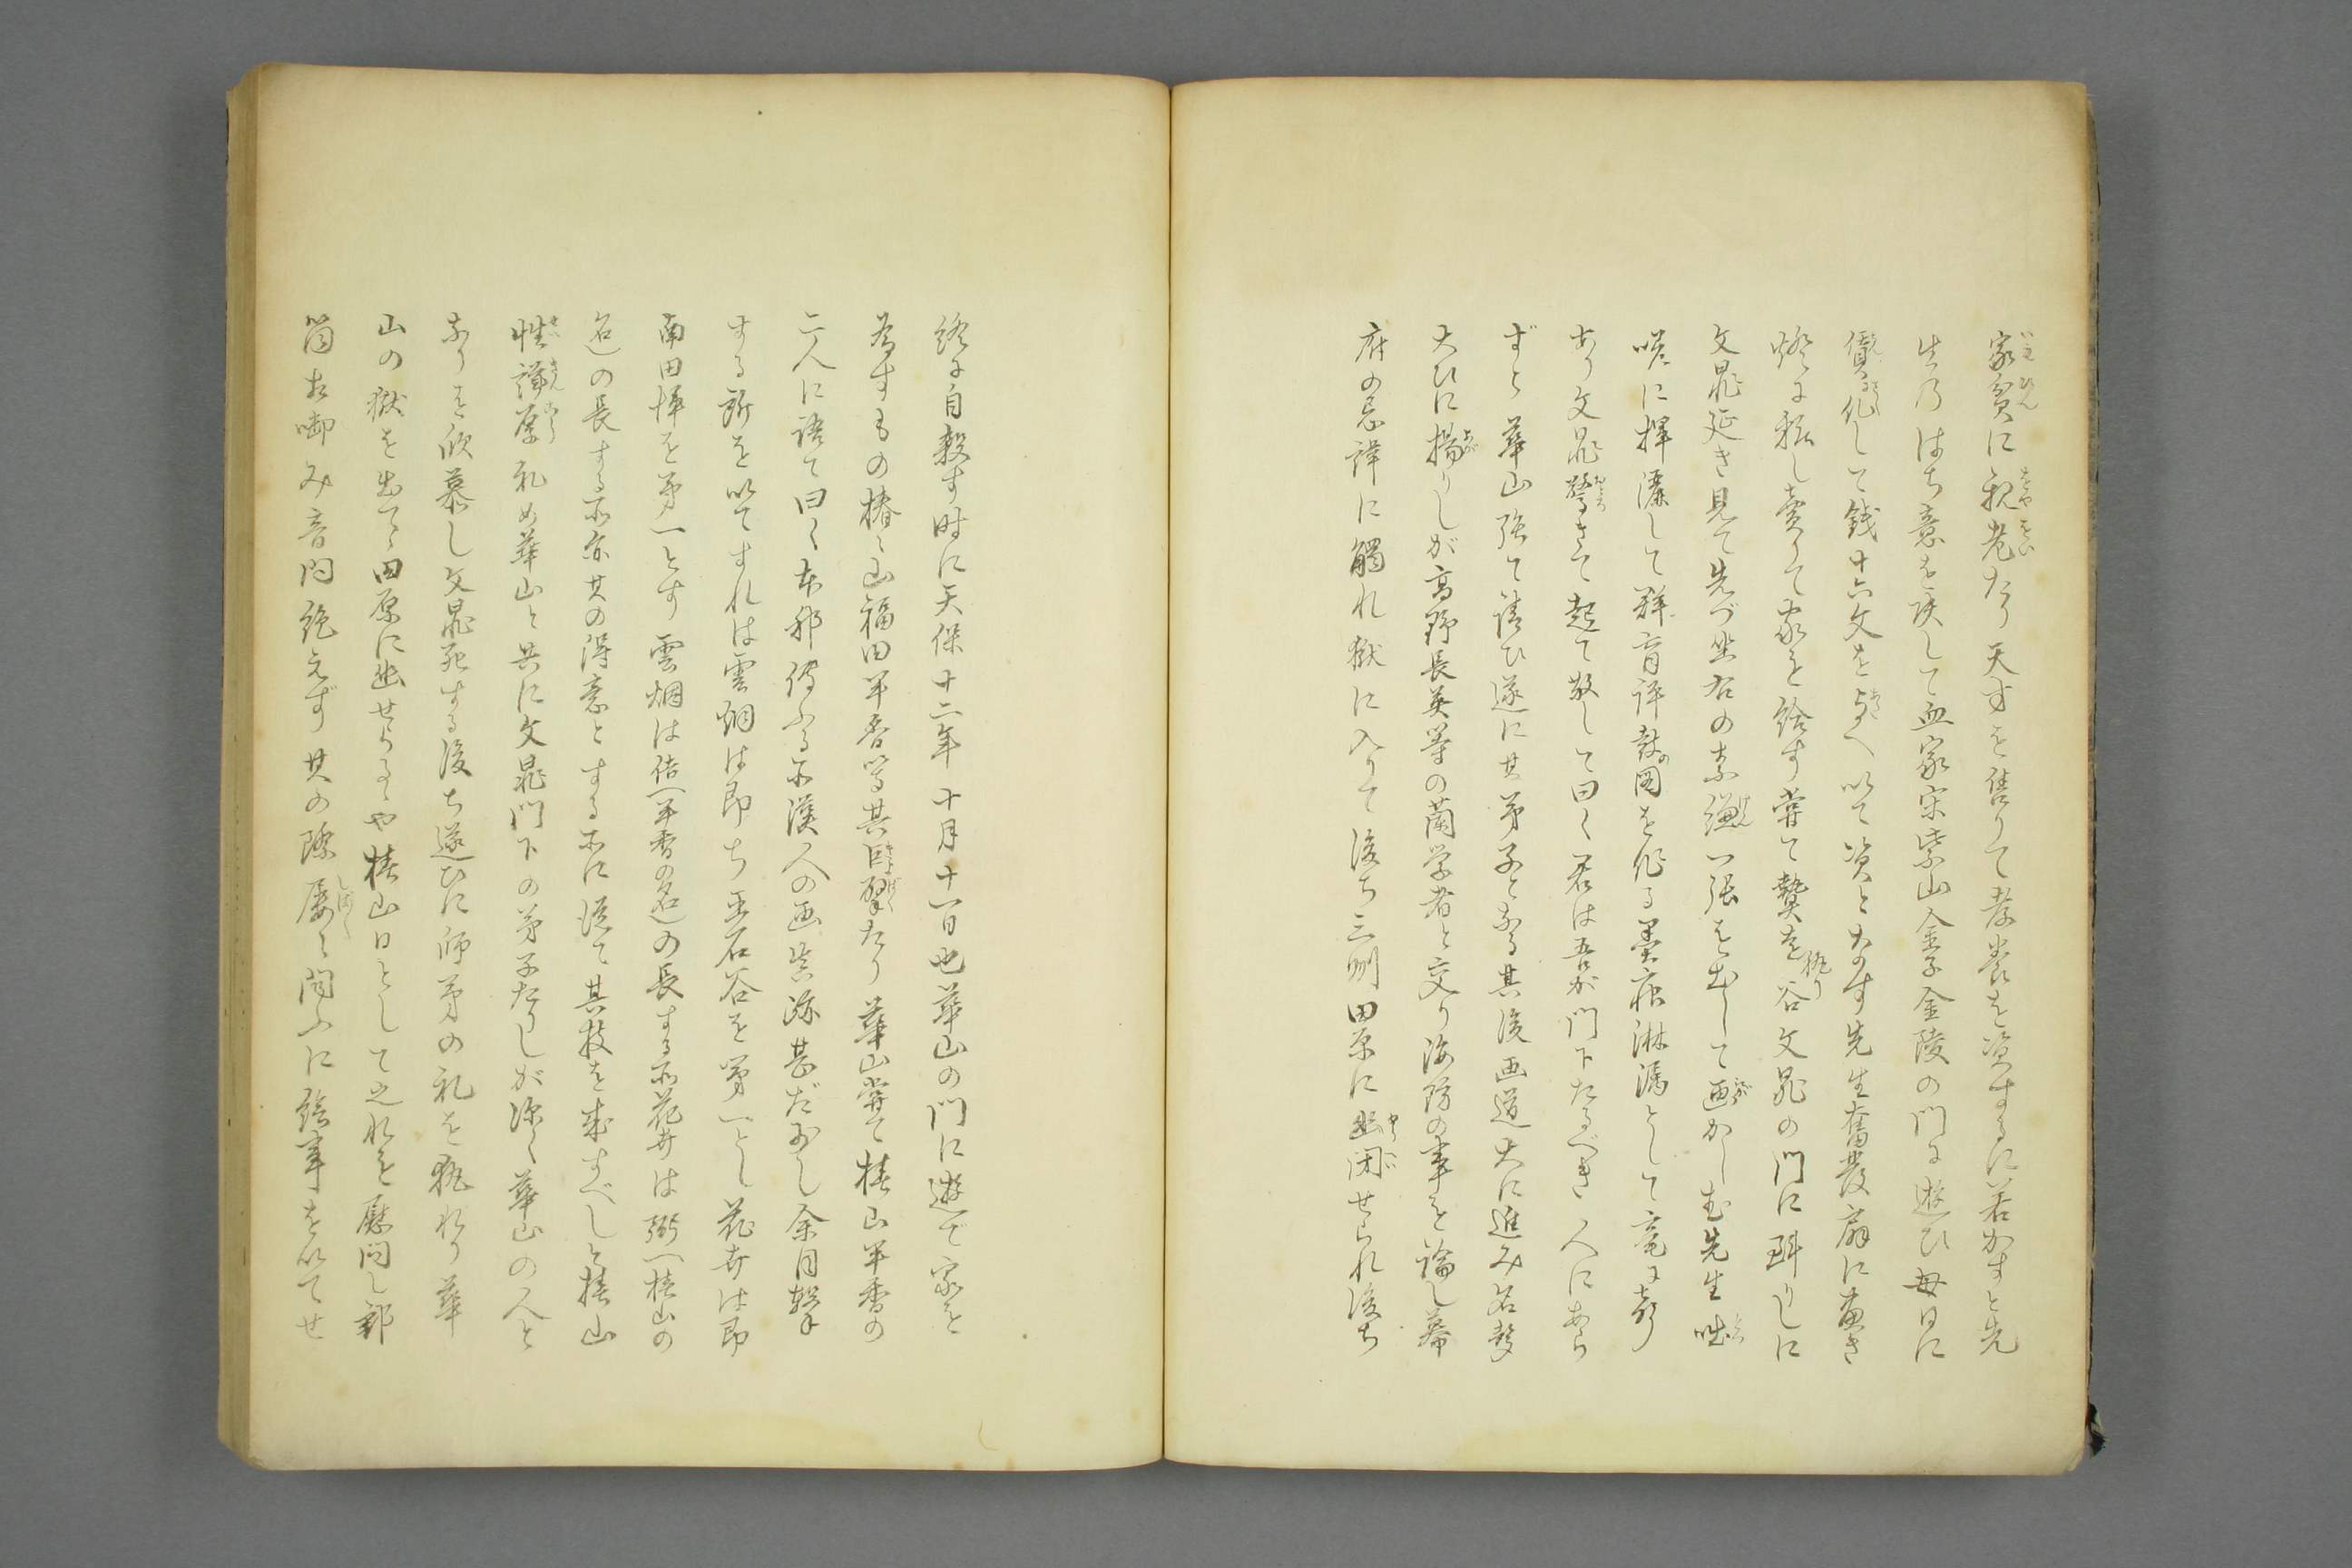 家貧に親老たり天才を售りて孝養を資するに若かずと先
生乃はち意を決して画家宋紫山金子金陵の門に遊ひ毎日に
傭作して銭十六文を与へ以て資と為す先生奮発扇に画き
燈に私し売りて家を給す嘗て贄を執り谷文晁の門に到りしに
文晁延き見て先づ坐右の素縑一張を出して画かしむ先生咄
嗟に揮灑して群盲評鼓の図を作る墨痕淋漓として毫に声
あり文晁驚きて起て敬して曰く君は吾が門下たるべき人にあら
ずと華山強て請ひ遂に其弟子となる其後画道大に進み名声
大ひに揚りしが高野長英等の蘭学者と交り海防の事を論し幕
府の忌諱に觸れ獄に入りて後ち三州田原に幽閉せられ後ち
終に自殺す時に天保十二年十月十一日也華山の門に遊で家を
為すもの椿々山福田半香等其巨擘たり華山嘗て椿山半香の
二人に語て曰く本邦傳ふる所漢人の画真跡甚だ少し余目撃
する所を以てすれは雲烟は即ち王石谷を第一とし花卉は即
南田惲を第一とす雲烟は佶(半香の名)の長する所花卉は弼(椿山の
名)の長する所亦其の得意とする所に従て其技を成すべしと椿山
性謹厚初め華山と共に文晁門下の弟子たりしが深く華山の人と
なりを欣慕し文晁死する後ち遂ひに師弟の礼を執れり華
山の獄を出でゝ田原に幽せらるゝや椿山日として之れを慰問し郵
筒相啣み音問絶えず其の際屡々問ふに絵事を以てせ